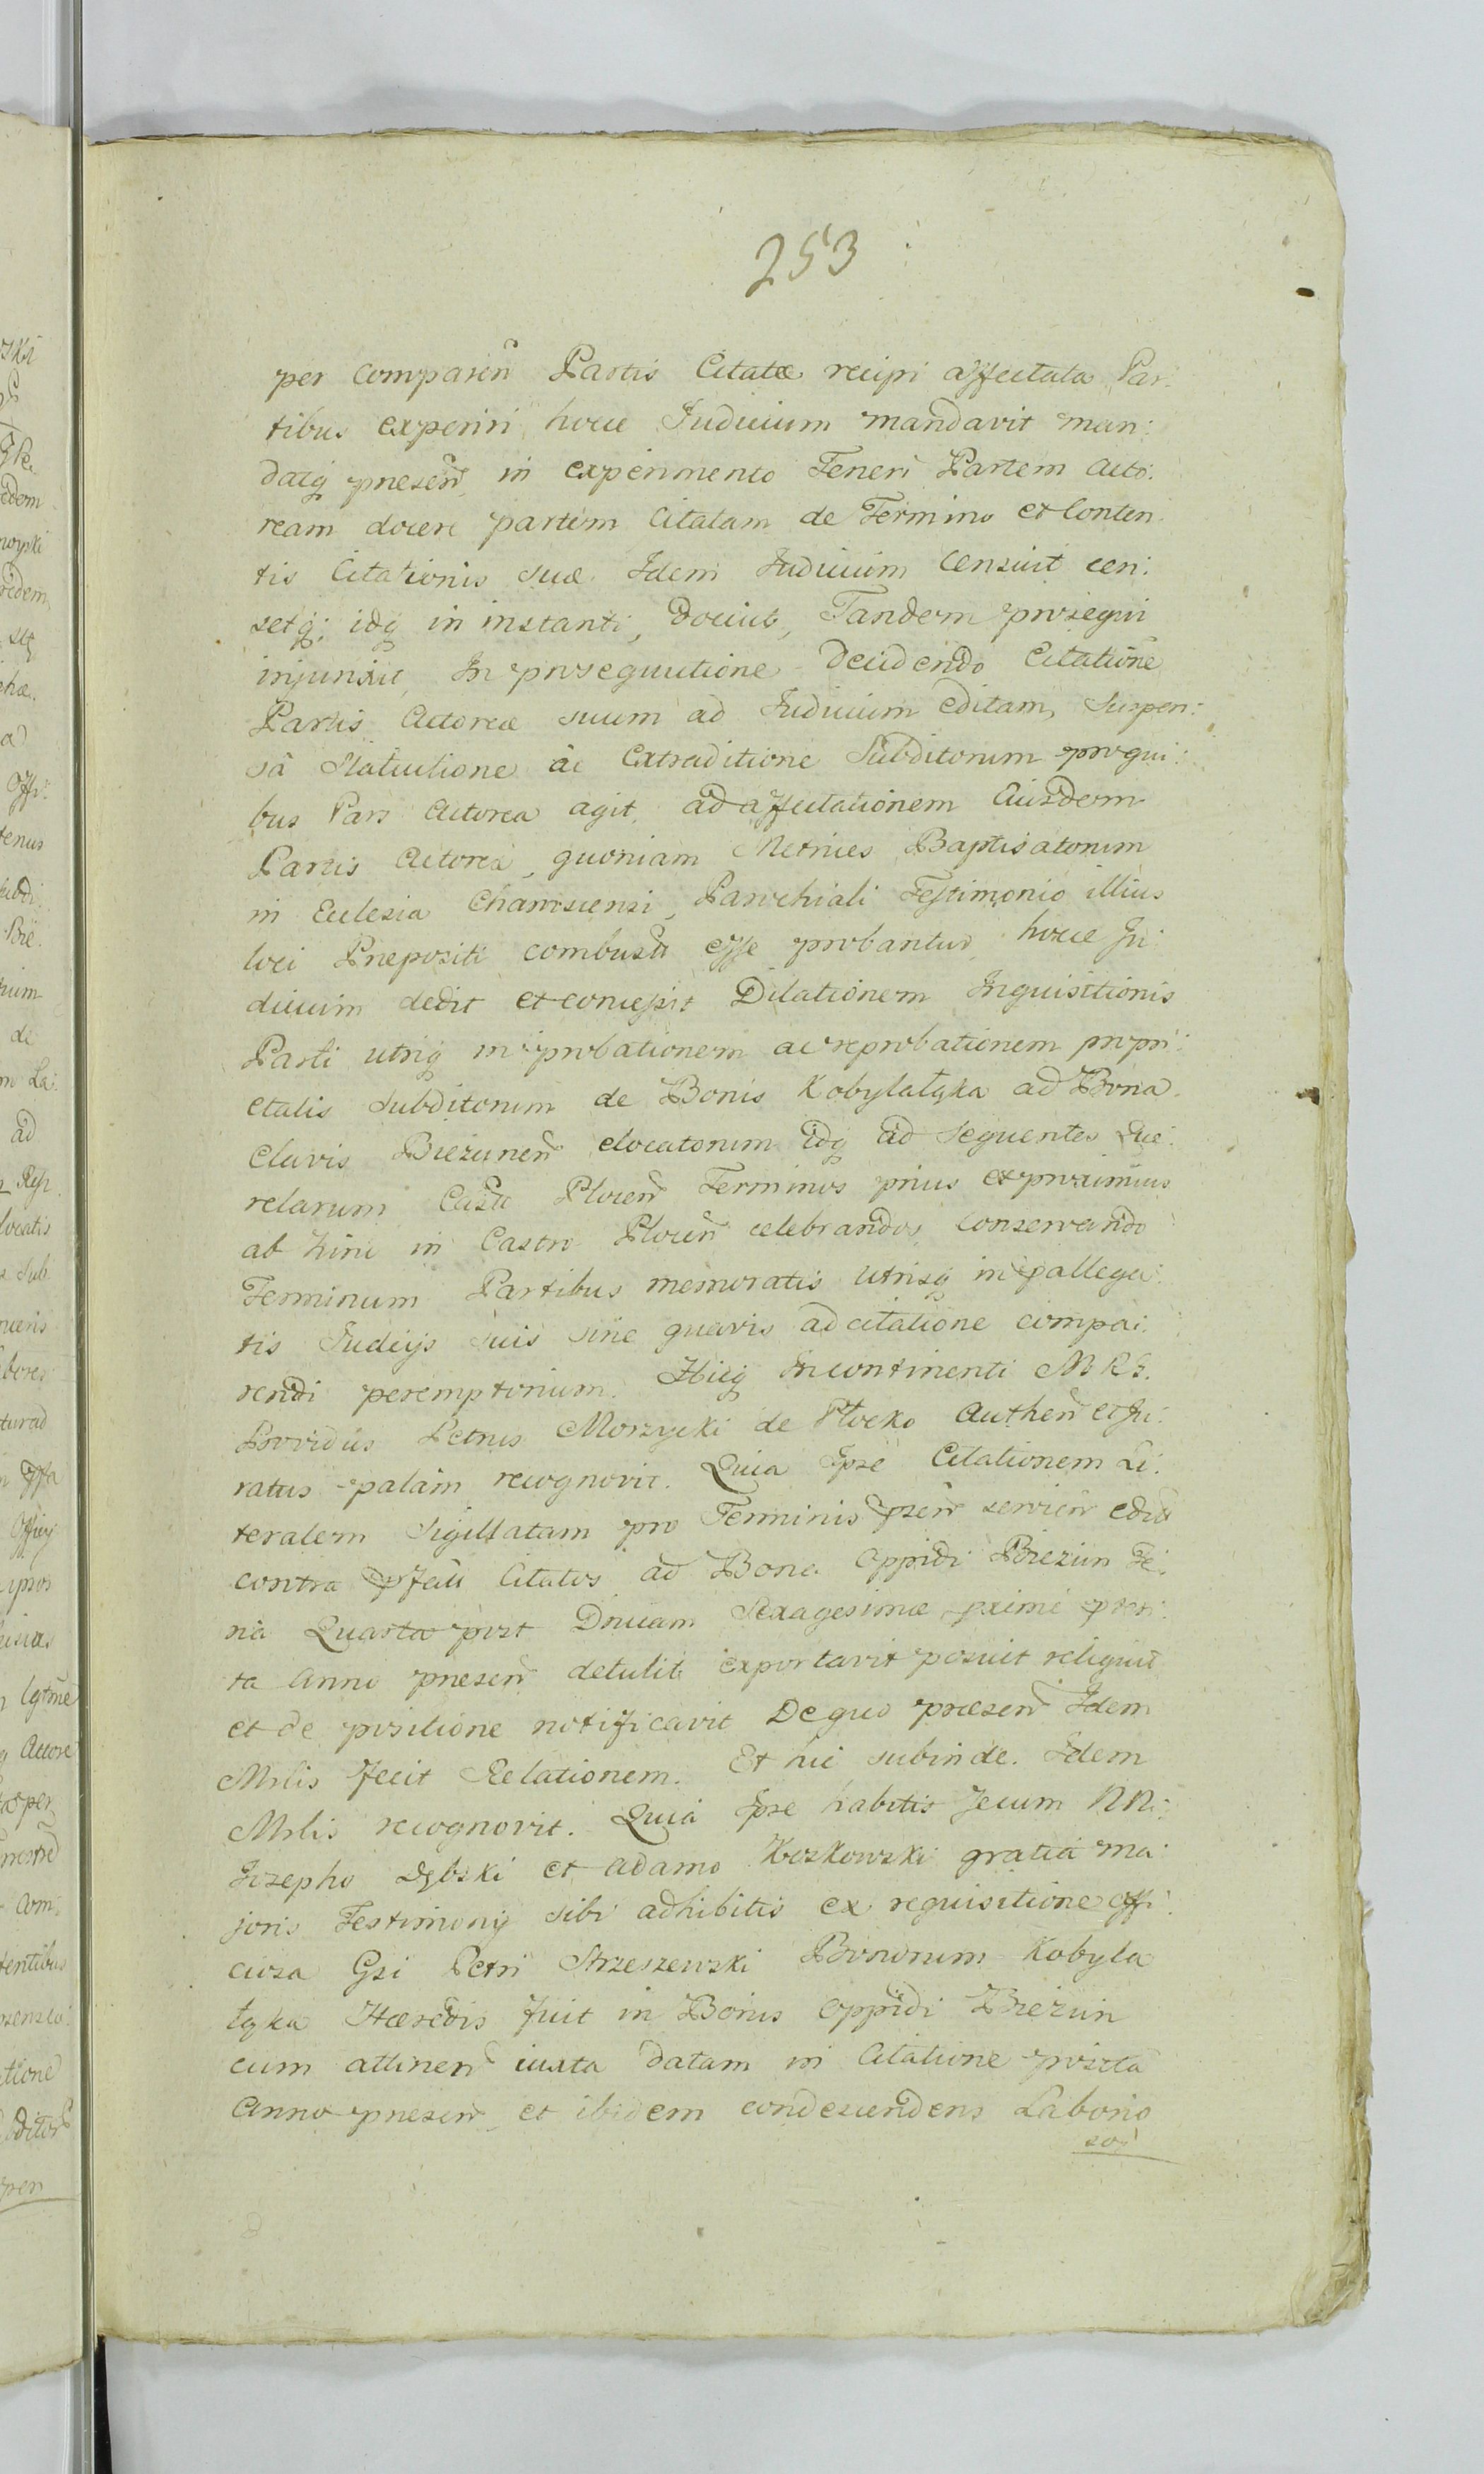 253
per comparen Partis Citatæ recipi affectata Par:
tibus experiri hocce Judicium mandavit man:
datq presen in experimento Teneri Partem Acto:
ream docere partem Citatam de Termino et Conten
tis Citationis suæ Idem Judicium Censuit cen:
setq: idq in instanti, docuit, Tandem prosequi
injunxit, In prosequutione Decidendo Citatione
Partis Actoreæ suum ad Judicium Editam, Suspen:
sâ Statuitione ac Extraditione Subditorum pro qui:
bus Pars Actorea agit, ad affectationem Eiusdem
Partis Actoreæ, quoniam Metrices Baptisatorum
in Ecclesia Chamscensi, Parochiali Testimonio illius
loci Prepositi combusta esse probantur, hocce Ju:
dicium dedit et concessit Dilationem Inquisitionis
Parti utriq in probationem ac reprobationem propri:
etatis Subditorum de Bonis Kobylałąka ad Bona
Clavis Biezunen elocatorum idq ad Sequentes Que:
relarum Castr Plocen Terminos prius et proximius
ab hinc in Castro Plocen celebrandos, conservando
Terminum Partibus memoratis utrisq in pallega:
tis Judicijs suis sine quavis adcitatione compa:
rendi peremptorium. Hicq Incontinenti MRG.
Providus Petrus Morzycki de Płocko Authen et Ju:
ratus palam recognovit. Quia Ipse Citationem Li:
teralem Sigillatam pro Terminis psen servien edit
contra pfatu Citatos ad Bona Oppidi Biezun Fe:
ria Quarta post Dnicam Sexagesimæ pxime preti:
ta Anno presen detulit exportavit posuit reliquit
et de positione notificavit De quo præsen Idem
Mrlis fecit Relationem. Et hic subinde. Idem
Mrlis recognovit. Quia Ipse habitis secum NN:
Josepho Dębski et Adamo Koskowski gratia ma:
joris Testimonij sibi adhibitis ex requisitione offi:
ciosa Gsi Petri Strzeszewski Bonorum Kobyla
łąka Hæredis fuit in Bonis Oppidi Biezun
cum attinen iuxta datam in Citatione posita
Anno presen et ibidem condescendens Laborio
sor